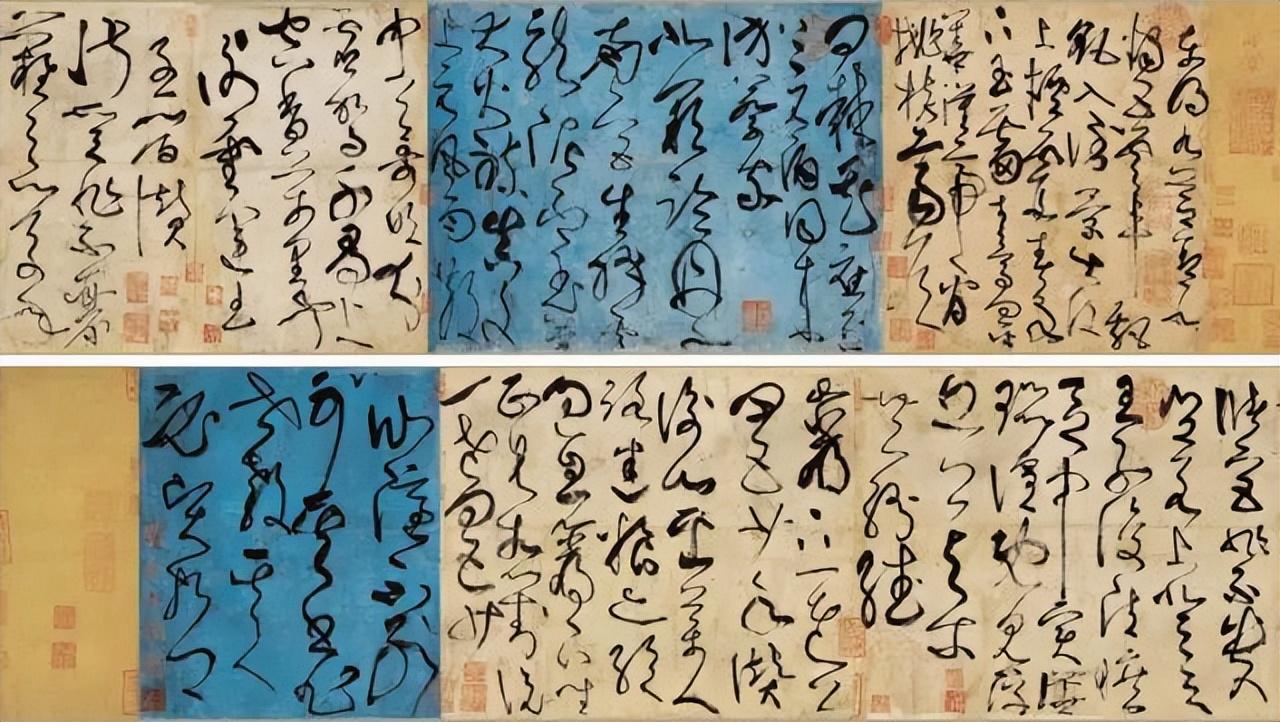 東明九芝蓋北
燭五雲車飄
飖入倒景出沒
上煙霞春泉
下玉霤青鳥向金
華漢帝看
桃核齊侯
問棗花應逐
上元酒同來
訪蔡家
北闕臨丹水
南宮生絳雲
龍泥印玉策
大火煉真文
上元風雨散
中天哥吹分
虛駕千尋上
空香萬里聞
謝靈運王
子晉贊
淑質非不麗
難以之百年
儲宮非不貴
豈若上登天
王子復清曠
區中實譁
囂喧既見浮
丘公與爾
共紛繙
巖下一老公
四五少年贊
衡山採藥人
路迷糧亦絕
過息巖下坐
正見相對說
一老四五少
仙隱不別
可其書非
世教其人
必賢哲